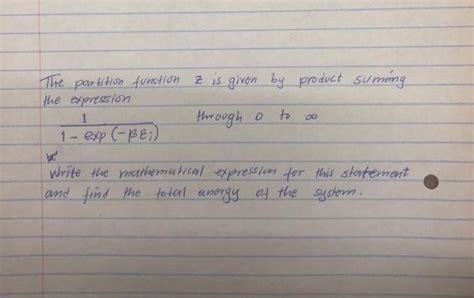 The partition function z is given by product suming
the expression
1 through 0 to ∞
1 - exp (-βεi)
Write the mathematical expression for this statement
and find the total energy of the system.